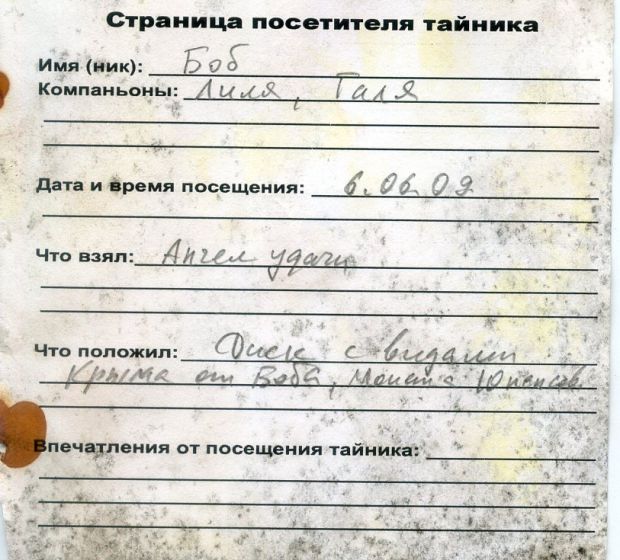 Страница посетителя тайника
Имя (ник): Боб
Компаньоны: Лиля, Галя
Дата и время посещения: 6.06.09
Что взял: Ангел удачи
Что положил: Диск с видами
Крыма от Боба,
Впечатления от посещения тайника: